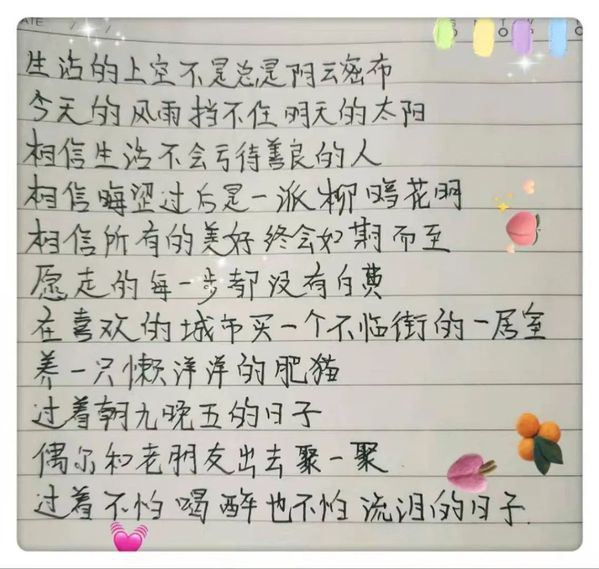 生活的上空不是总是阴云密布
今天的风雨挡不住明天的太阳
相信生活不会亏待善良的人
相信晦涩过后是一派柳暗花明
相信所有的美好终会如期而至
愿走的每一步都没有白费
在喜欢的城市买一个不临街的一居室
养一只懒洋洋的肥猫
过着朝九晚五的日子
偶尔和老朋友出去聚一聚
过着不怕喝醉也不怕流泪的日子